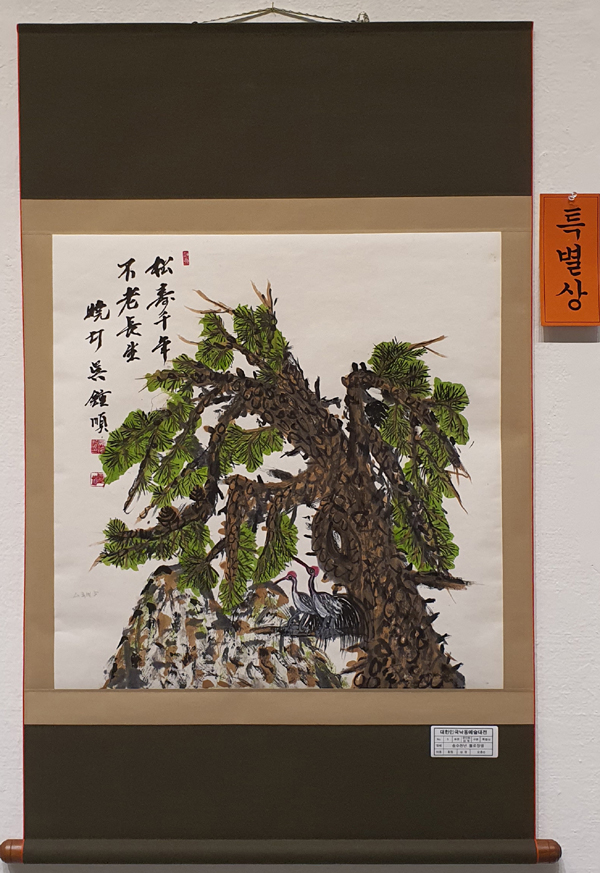 松壽千年
不老長生
曉汀 吳鍾順
특별상
대한민국낙동예술대전